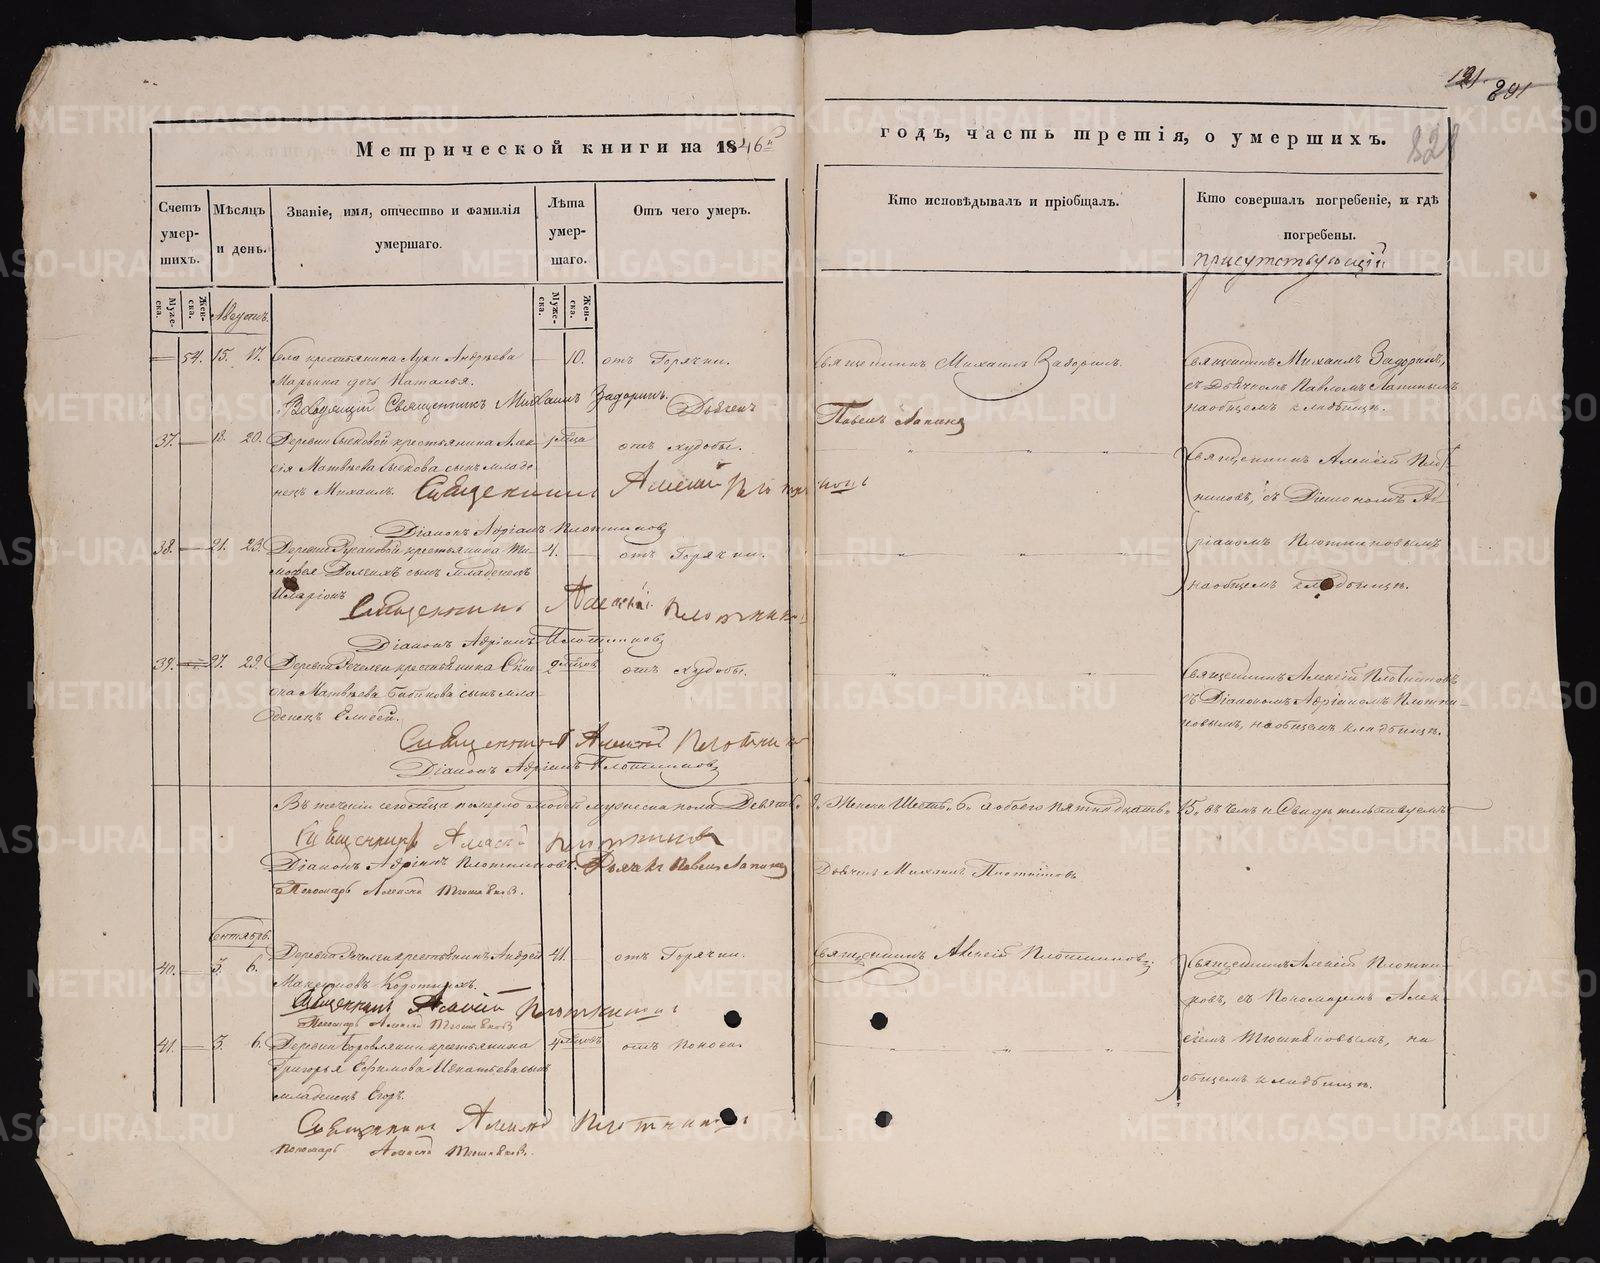 121. 291
828
Метрической книги на 1846й
годъ, часть третія, о умершихъ.
Счетъ умер-шихъ.
Мѣсяцъ и день.
Званіе, имя, отчество и фамилія умершаго.
Лѣта умер-шаго.
Отъ чего умеръ.
Кто исповѣдывалъ и пріобщалъ.
Кто совершалъ погребеніе, и гдѣ погребены.
присутствующій
Муже-ска.
Жен-ска.
Августъ.
Муже-ска.
Жен-ска.
— 54. 15. 17. Села крестьянина Луки Андрѣева — 10. отъ Горячки. Священникъ Михаилъ Задоринъ. Священникъ Михаилъ Задоринъ,
Марьина дочь Наталья. съ Дьячкомъ Павломъ Лапинымъ
Священникъ Михаилъ Задоринъ. Дьячекъ Павелъ Лапинъ на общемъ кладбищѣ.
37. — 18. 20. Деревни Быковой крестьянина Алек- 1 мѣсца отъ худобы. " " " Священникъ Алексій Плот-
сія Матвѣева Быкова сынъ младе-
нецъ Михаилъ. Священникъ Алексій Плотниковъ никовъ, съ Діакономъ Ад-
Діаконъ Адріанъ Плотниковъ
38. — 21. 23. крестьянина Ти- 4. — отъ Горячки. " " " ріаномъ Плотниковымъ
мофея сынъ младенецъ на общемъ кладбищѣ.
Иларіонъ
Священникъ Алексій Плотниковъ
Діаконъ Адріанъ Плотниковъ
39. — 27. 29. Деревни крестьянина 2 мѣсцовъ отъ худобы. " " " Священникъ Алексій Плотниковъ
Матвѣева сынъ мла- съ Діакономъ Адріаномъ Плотни-
денецъ Елисей. ковымъ, на общемъ кладбищѣ.
Священникъ Алексій Плотниковъ
Діаконъ Адріанъ Плотниковъ
Въ теченіи сего мѣсца померло людей мужеска пола Девять 9. Женска Шесть 6. а обоего пятнадцать 15. въ чемъ и Свидѣтельствуемъ
Священникъ Алексій Плотниковъ
Діаконъ Адріанъ Плотниковъ. Дьячекъ Павелъ Лапинъ Дьячекъ Михаилъ Плотниковъ
Пономарь Алексѣй Тюшняковъ.
Сентябрь.
40. — 3. 6. Деревни крестьянинъ Андрей 41. — отъ Горячки. Священникъ Алексій Плотниковъ. Священникъ Алексій Плотни-
Максимовъ Короткихъ.
Священникъ Алексій Плотниковъ ковъ, съ Пономаремъ Алек-
Пономарь Алексѣй Тюшняковъ
41. — 3. 6. Деревни Боровлянки крестьянина 4 мѣсцовъ отъ поноса. " " " сіемъ Тюшняковымъ, на
Григорья Ефимова Игнатьева сынъ
младенецъ Егоръ. общемъ кладбищѣ.
Священникъ Алексій Плотниковъ
Пономарь Алексѣй Тюшняковъ.
METRIKI.GASO-URAL.RU